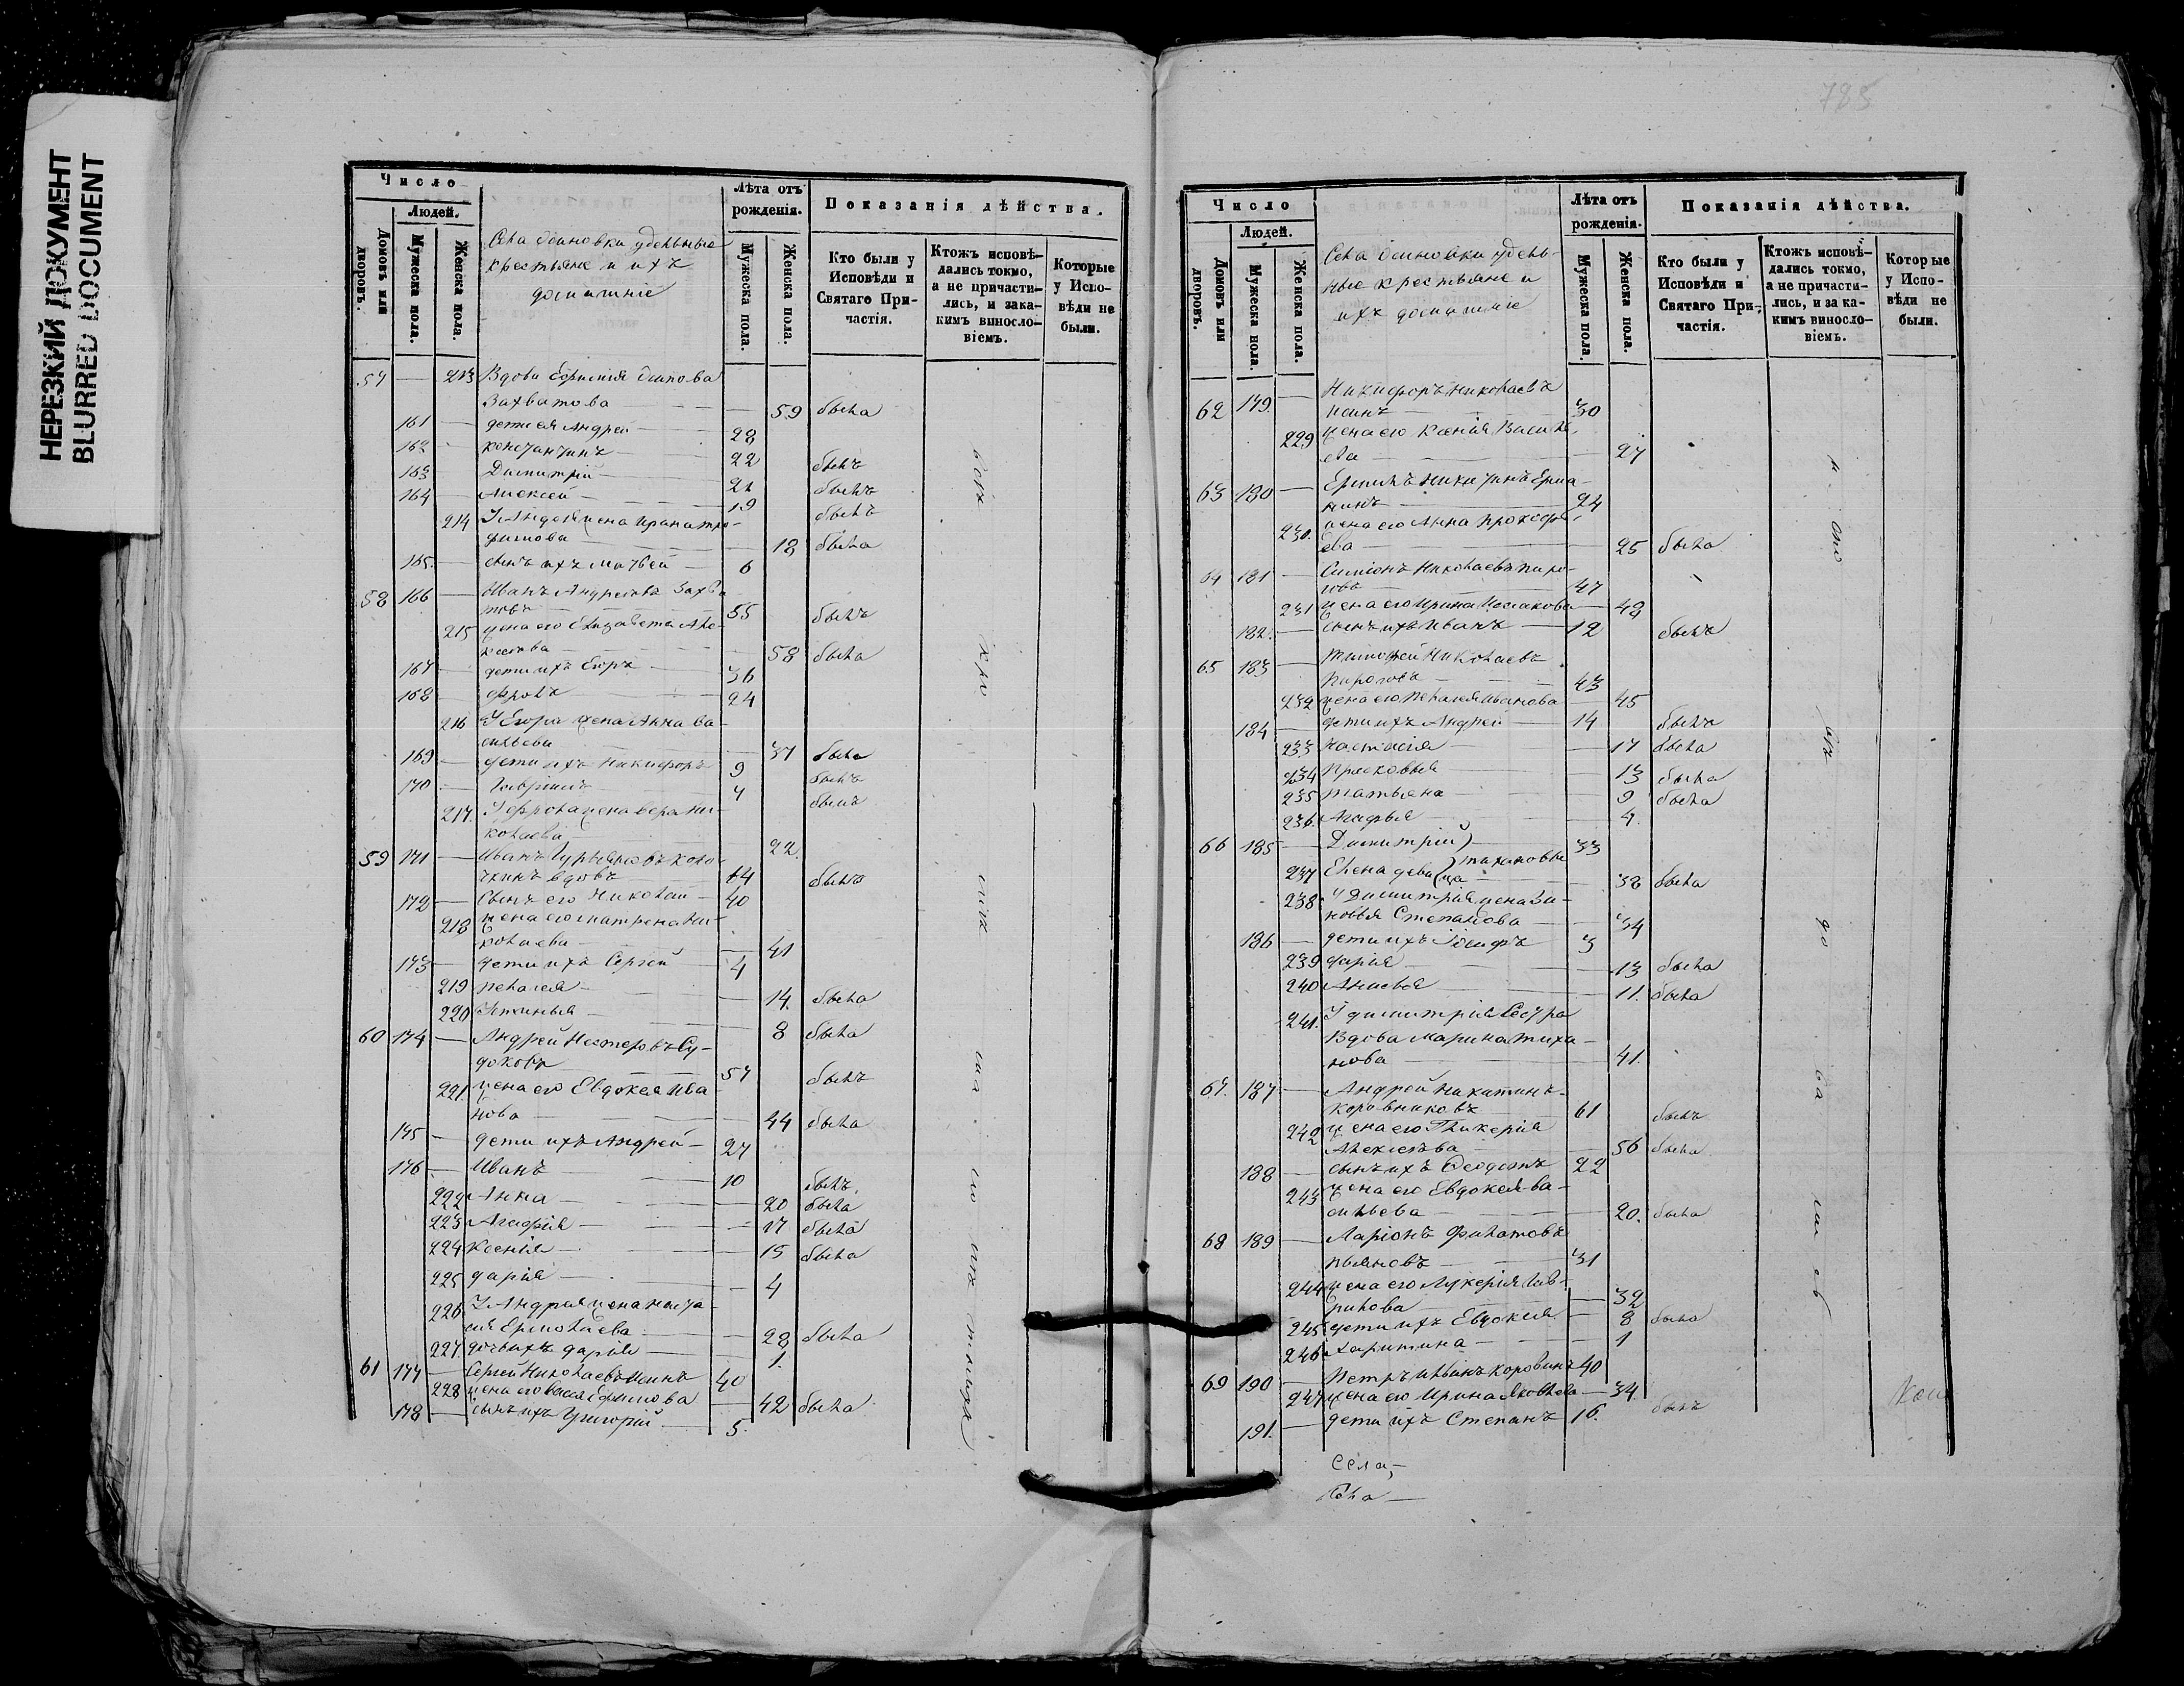 НЕРЕЗКИЙ ДОКУМЕНТ
BLURRED DOCUMENT
Число
Людей.
Домовъ или дворовъ.
Мужеска пола.
Женска пола.
Села Осиновки удѣльные
крестьяне и ихъ
домашніе
Лѣта отъ рожденія.
Мужеска пола.
Женска пола.
Показанія дѣйства.
Кто были у Исповѣди и Святаго Причастія.
Ктожъ исповѣдались токмо, а не причастились, и за какимъ винословіемъ.
Которые у Исповѣди не были.
57 — 213 Вдова Осипова
Захватова — 59 была
161 — дети ея Андрей — 28
162 — Константинъ — 22 былъ
163 — Димитрій — 21 былъ
164 — Алексей — 19 былъ
214 У Андрея жена Ирина Тро-
фимова — 18 была
165 — сынъ ихъ Матвей — 6
58 166 — Иванъ Андреевъ Захва
товъ — 55 былъ
215 жена его Елизавета Але-
ксеева — 58 была
167 — дети ихъ Егоръ — 36
168 — Фролъ — 24
216 У Егора жена Анна Ва-
сильева — 37 была
169 — дети ихъ Никифоръ 9 былъ
170 — Гаврiилъ — 7 былъ
217. У Фрола жена Вера Ни-
колаева — 22.
59 171 — Иванъ Гурьяновъ
вдовъ — 64 былъ
172 — Сынъ его Николай — 40
218 жена его Матрена Ни-
колаева — 41
173 — дети ихъ Сергей — 4
219 Пелагея — 14. была
220 Устинья — 8 была
60 174 — Андрей Нестеровъ Су-
доковъ — 57 былъ
221 жена его Евдокея Ива
нова — 44 была
175 — дети ихъ Андрей — 27
176 — Иванъ — 10 былъ
222 Анна — 20 была
223 Агафiя — 17 была
224 Ксенiя — 15 была
225 Дарiя — 4
226 У Андрея жена Наста-
сiя Ермолаева — 28 была
227. дочь ихъ Дарiя — 1.
61 177 — Сергей Николаевъ 40
228 жена его Ефимова — 42 была
178 — сынъ ихъ Григорiй — 5.
785
Число
Людей.
Домовъ или дворовъ.
Мужеска пола.
Женска пола.
Села Осиновки удѣль-
ные крестьяне и
ихъ домашніе
Лѣта отъ рожденія.
Мужеска пола.
Женска пола.
Показанія дѣйства.
Кто были у Исповѣди и Святаго Причастія.
Ктожъ исповѣдались токмо, а не причастились, и за какимъ винословіемъ.
Которые у Исповѣди не были.
62 179. — Никифоръ Николаевъ
30
229 жена его Ксенiя Василь
ева — 27
63 180 — Никитинъ
24
230. жена его Анна Прокофь
ева — 25 была
64 181 — Симiонъ Николаевъ Пиро-
говъ — 47
231 жена его Ирина — 48
182. — сынъ ихъ Иванъ — 12 былъ
65 183 — Тимофей Николаевъ
Пироговъ — 43
232 жена его Пелагея Иванова 45
184 — дети ихъ Андрей — 14 былъ
233 Настасiя — 17 была
234 Прасковья — 13 была
235 Татьяна — 9 была
236. Агафья — 4.
66 185 — Димитрiй — 33
237 Елена девица Тихоновы — 38 была
238 У Димитрiя жена Зи-
новья Степанова — 34
186 — дети ихъ Iосифъ 3
239 Дарiя — 13 была
240 11. была
241. У Димитрiя сестра
Вдова Марина Тихо-
нова — 41.
67. 187 — Андрей Никитинъ
Коровниковъ — 61 былъ
242 жена его Гликерiя
Алексеева — 56 была
188 — сынъ ихъ Федотъ 22
243 жена его Евдокея Ва-
сильева — 20. была
68 189 — Ларiонъ Филатовъ
Пьяновъ — 31
244 жена его Лукерiя Гав-
рилова — 32
245 дети ихъ Евдокея — 8 была
246 Харитина — 1
69 190 — Петръ 40
247 жена его Ирина Яковлева — 34.
191. — дети ихъ Степанъ 16. былъ
Села,